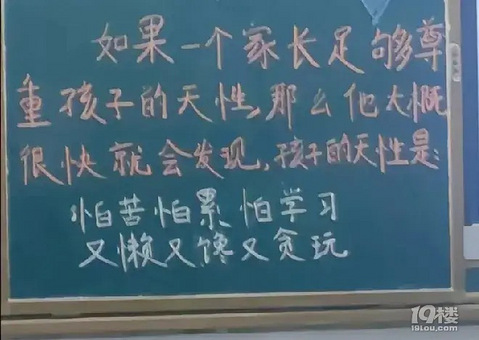 如果一个家长足够尊
重孩子的天性,那么他大概
很快就会发现,孩子的天性是:
怕苦怕累怕学习
又懒又馋又贪玩
19楼
19lou.com